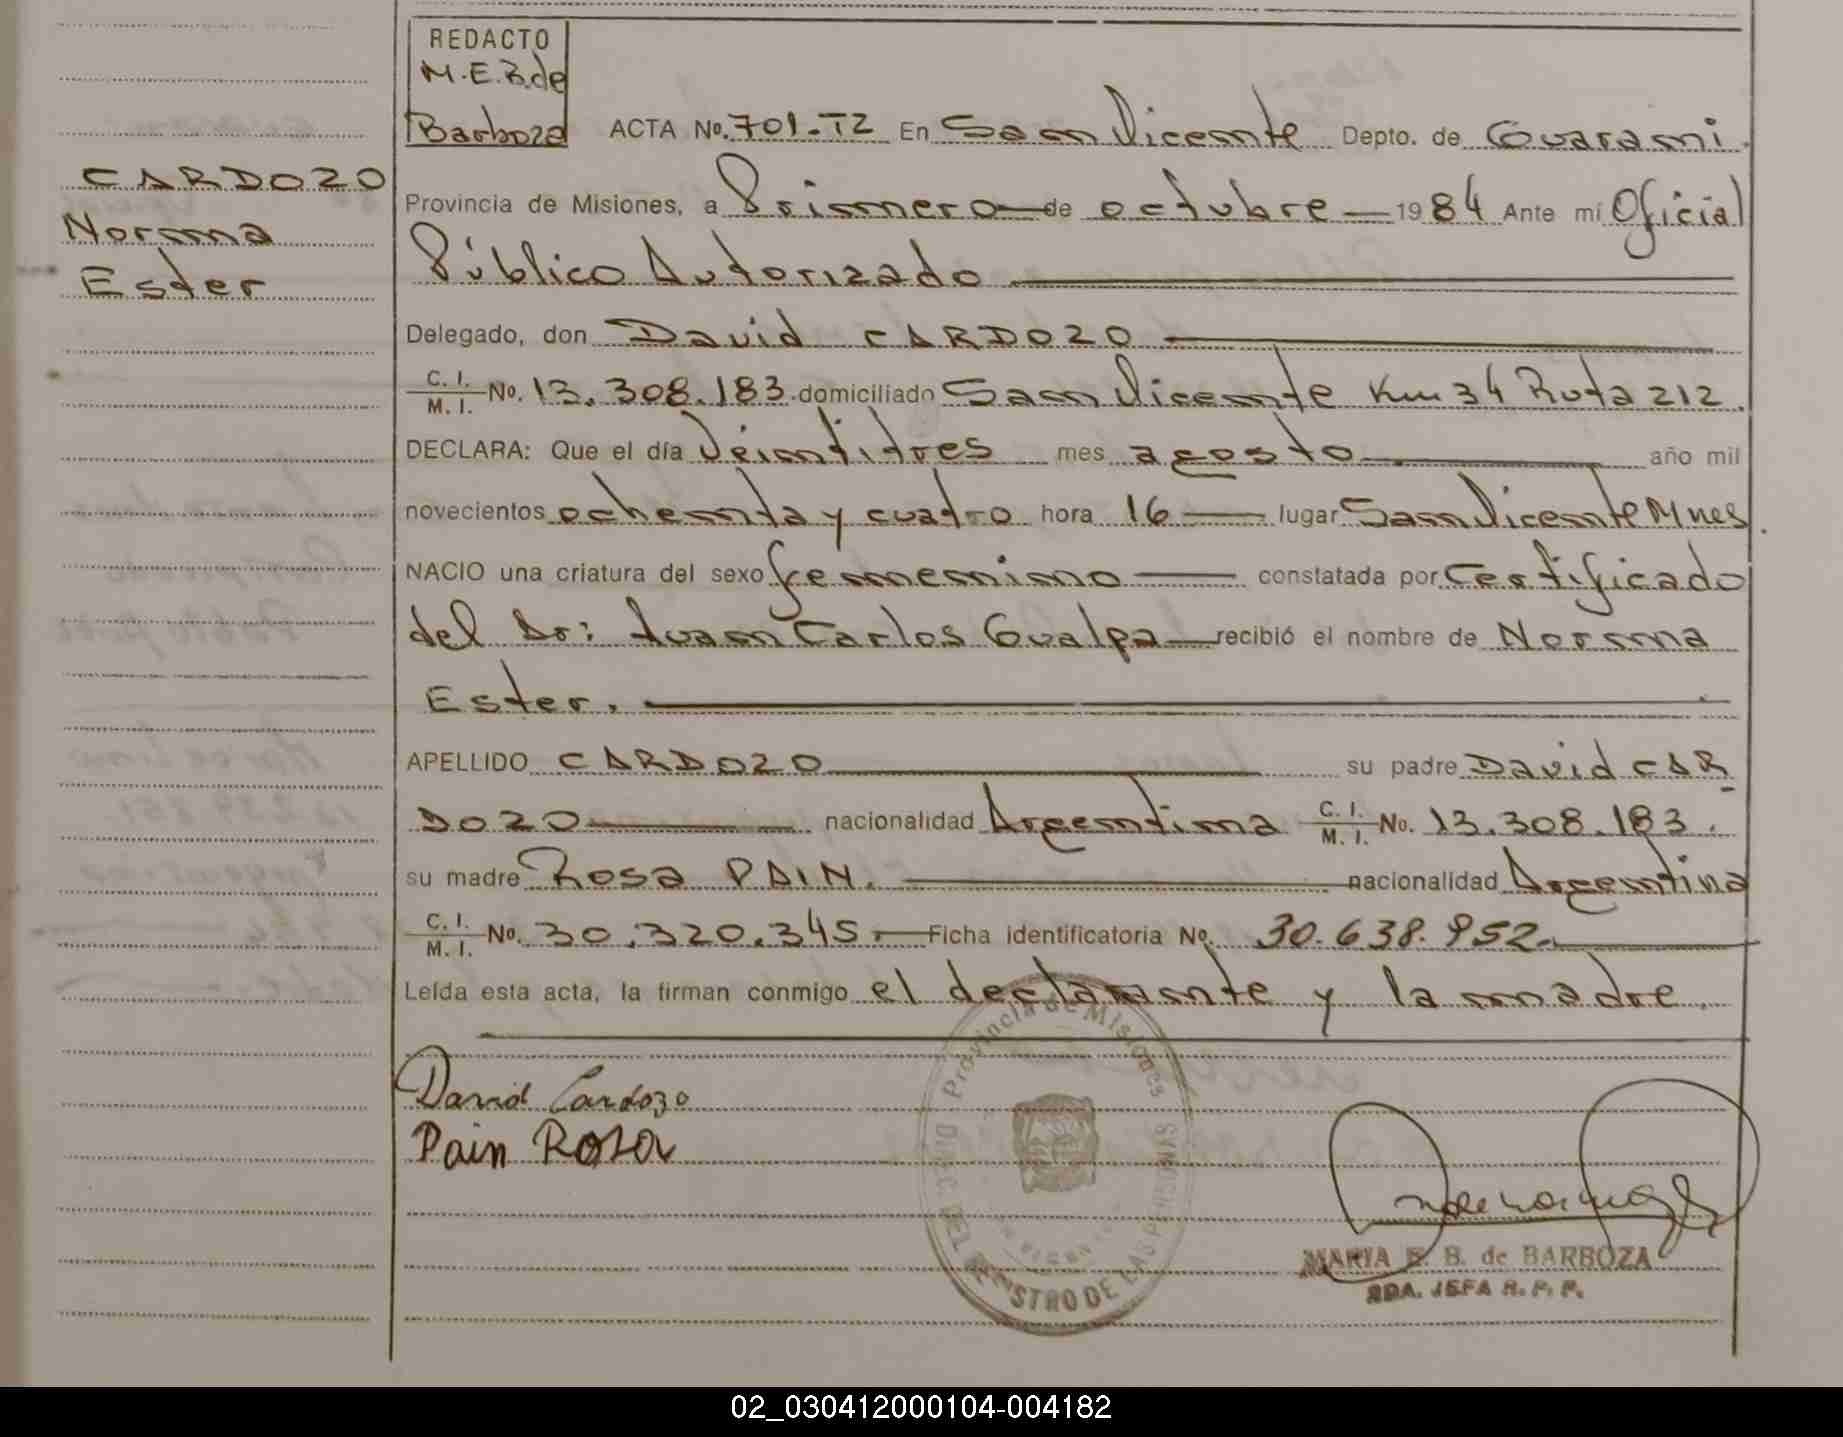 REDACTO
M.E.B.de
Barboza
ACTA No. 701-T2 En San Vicente Depto. de Guarani.
CARDOZO
Norma
Ester
Provincia de Misiones, a Primero de octubre 1984 Ante mí Oficial
Público Autorizado
Delegado, don David CARDOZO
C. I.
M. I. No. 13.308.183 domiciliado San Vicente Km 34 Ruta 212.
DECLARA: Que el día Veintitres mes agosto año mil
novecientos ochenta y cuatro hora 16 lugar San Vicente Mnes.
NACIO una criatura del sexo femenino constatada por Certificado
del Dr: Juan Carlos Gualpa recibió el nombre de Norma
Ester.
APELLIDO CARDOZO su padre David CAR
DOZO nacionalidad Argentina C. I.
M. I. No. 13.308.183.
su madre Rosa PAIN. nacionalidad Argentina
C. I.
M. I. No. 30.320.345. Ficha identificatoria No. 30.638.952.
Leída esta acta, la firman conmigo el declarante y la madre.
David Cardozo
Pain Rosa
Provincia de Misiones
DIREC. DEL REGISTRO DE LAS PERSONAS
MARIA E. B. de BARBOZA
2DA. JEFA R. P. P.
02_030412000104-004182